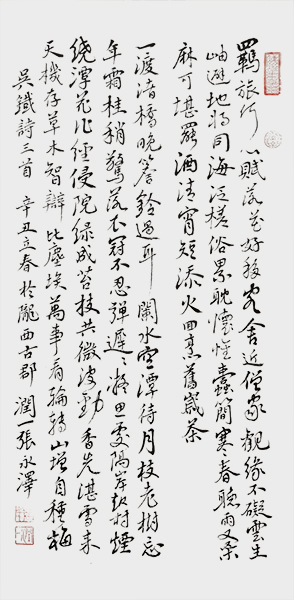 羈旅何心賦落花好移客舍近僧家觀緣不礙雲生
岫避地將同海泛槎俗累耽慵惟蠹簡寒春聽雨又桑
麻可堪罷酒清宵短添火回烹舊歲茶
一渡渚橋晚簷鈴過耳闌水空潭待月枝老樹忘
年霜桂稍驚落衣冠不忍彈遲遲凝思處隔岸起村煙
繞潭花作徑侵院綠成苔枝共微波動香先湛雪來
天機存草木智辯比塵埃萬事看輪轉山僧自種梅
吳鐵詩三首 辛丑立春於隴西古郡 潤一張永澤